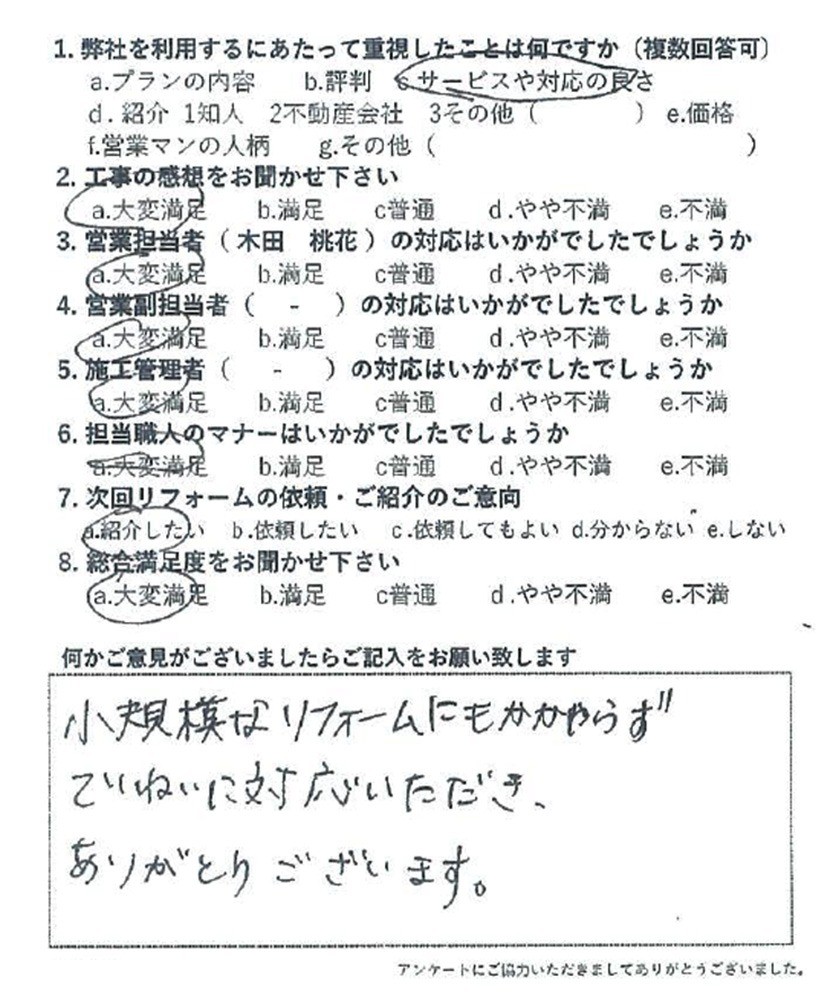 1. 弊社を利用するにあたって重視したことは何ですか（複数回答可）
a.プランの内容　b.評判　c サービスや対応の良さ
d. 紹介 1知人 2不動産会社 3その他（　　　）e.価格
f.営業マンの人柄　g.その他（　　　　　　　　　　）
2. 工事の感想をお聞かせ下さい
a.大変満足　b.満足　c普通　d.やや不満　e.不満
3. 営業担当者（ 木田 桃花 ）の対応はいかがでしたでしょうか
a.大変満足　b.満足　c普通　d.やや不満　e.不満
4. 営業副担当者（ - ）の対応はいかがでしたでしょうか
a.大変満足　b.満足　c普通　d.やや不満　e.不満
5. 施工管理者（ - ）の対応はいかがでしたでしょうか
a.大変満足　b.満足　c普通　d.やや不満　e.不満
6. 担当職人のマナーはいかがでしたでしょうか
a.大変満足　b.満足　c普通　d.やや不満　e.不満
7. 次回リフォームの依頼・ご紹介のご意向
a.紹介したい　b.依頼したい　c.依頼してもよい d.分からない e.しない
8. 総合満足度をお聞かせ下さい
a.大変満足　b.満足　c普通　d.やや不満　e.不満
何かご意見がございましたらご記入をお願い致します
小規模なリフォームにもかかわらず
ていねいに対応いただき、
ありがとうございます。
アンケートにご協力いただきましてありがとうございました。